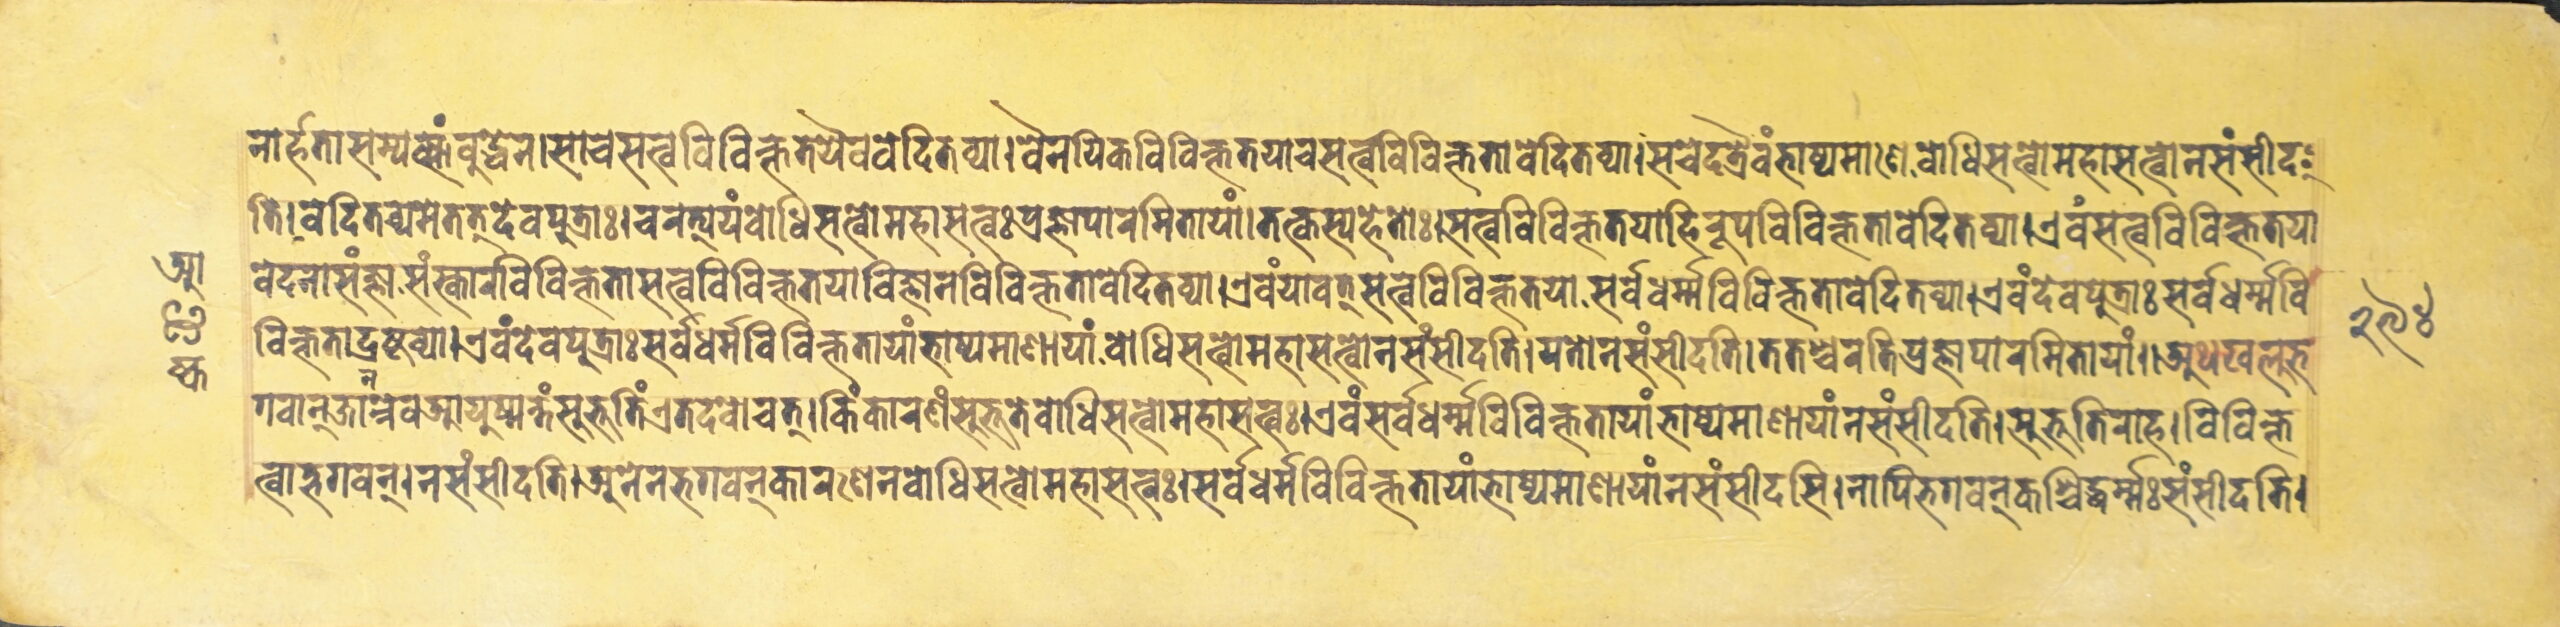 नार्हतासम्यक्संबुद्धेन।साचसत्त्वविविक्ततयैववेदितव्या।वैनयिकविविक्ततयाचसत्त्वविविक्ततावेदितव्या।सचेदत्रैवंभाष्यमाणेबोधिसत्त्वोमहासत्त्वोनसंसीद
ति।वेदितव्यमेतत्देवपुत्राः।चरत्ययंबोधिसत्त्वोमहासत्त्वःप्रज्ञापारमितायां।तत्कस्यहेतोः।सत्त्वविविक्ततयाहिरूपविविक्ततावेदितव्या।एवंसत्त्वविविक्ततया
वेदनासंज्ञासंस्कारविविक्ततासत्त्वविविक्ततयाविज्ञानविविक्ततावेदितव्या।एवंयावत्सत्त्वविविक्ततयासर्वधर्म्मविविक्ततावेदितव्या।एवंदेवपुत्राःसर्वधर्म्मवि
विक्तताद्रष्टव्या।एवंदेवपुत्राःसर्वधर्मविविक्ततायांभाष्यमाणायांबोधिसत्त्वोमहासत्त्वोनसंसीदति।यतोनसंसीदति।ततश्चरतिप्रज्ञापारमितायां॥अथखलुभ
गवान्जानन्नेवआयुष्मन्तंसुभूतिंएतदवोचत्।किंकारणंसुभूतेबोधिसत्त्वोमहासत्त्वः।एवंसर्वधर्म्मविविक्ततायांभाष्यमाणायांनसंसीदति।सुभूतिराह।विविक्त
त्वाभगवन्।नसंसीदति।अनेनभगवन्कारणेनबोधिसत्त्वोमहासत्त्वः।सर्वधर्मविविक्ततायांभाष्यमाणायांनसंसीदसि।नापिभगवन्कश्चिद्धर्म्मःसंसीदति।
२९४